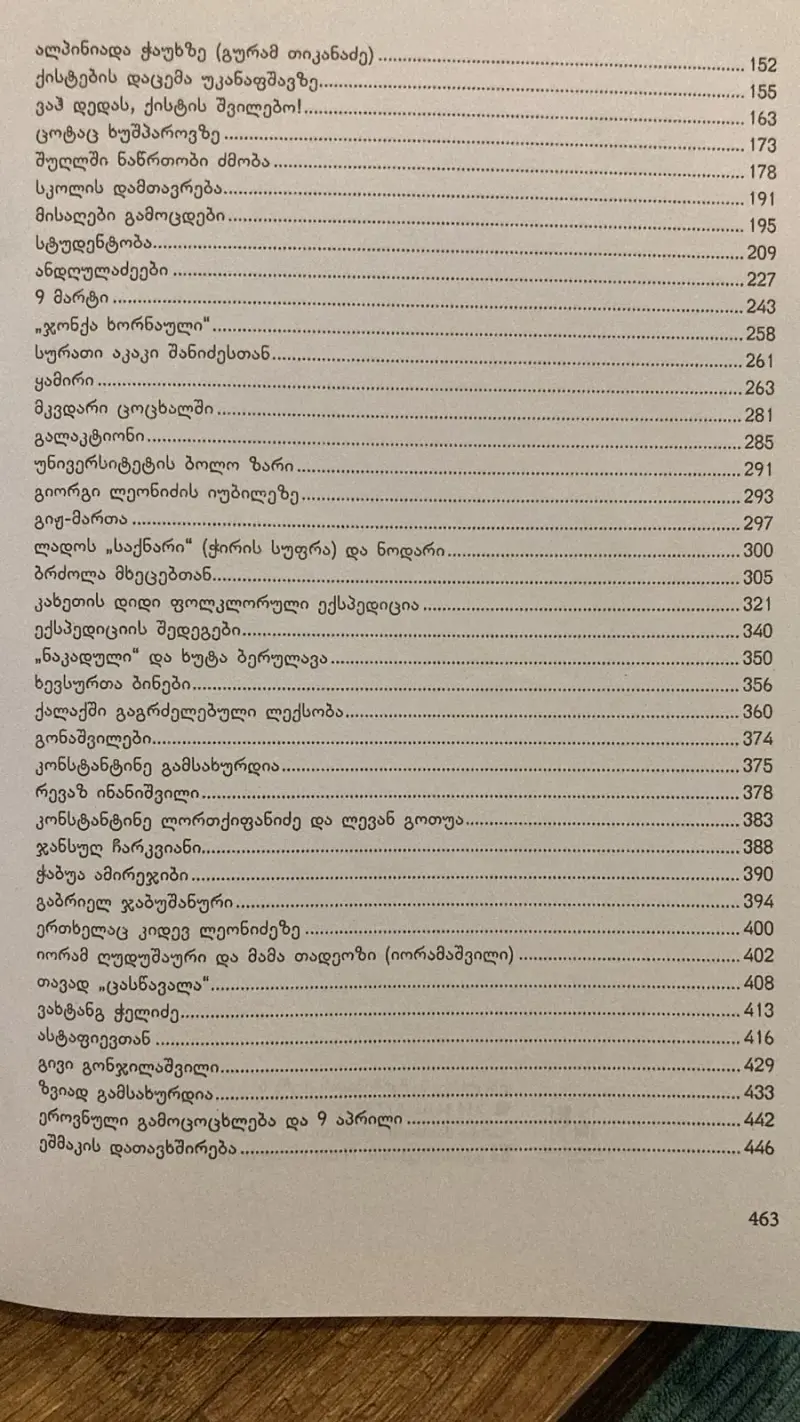 ალპინიადა ჭაუხზე (გურამ თიკანაძე) 152
ქისტების დაცემა უკანაფშავზე 155
ვაჰ დედას, ქისტის შვილებო! 163
ცოტაც ხუშპაროვზე 173
შუღლში ნაწრთობი ძმობა 178
სკოლის დამთავრება 191
მისაღები გამოცდები 195
სტუდენტობა 209
ანდღულაძეები 227
9 მარტი 243
„ჯონქა ხორნაული“ 258
სურათი აკაკი შანიძესთან 261
ყამირი 263
მკვდარი ცოცხალში 281
გალაკტიონი 285
უნივერსიტეტის ბოლო ზარი 291
გიორგი ლეონიძის იუბილეზე 293
გიჟ-მართა 297
ლადოს „საქნარი“ (ჭირის სუფრა) და ნოდარი 300
ბრძოლა მხეცებთან 305
კახეთის დიდი ფოლკლორული ექსპედიცია 321
ექსპედიციის შედეგები 340
„ნაკადული“ და ხუტა ბერულავა 350
ხევსურთა ბინები 356
ქალაქში გაგრძელებული ლექსობა 360
გონაშვილები 374
კონსტანტინე გამსახურდია 375
რევაზ ინანიშვილი 378
კონსტანტინე ლორთქიფანიძე და ლევან გოთუა 383
ჯანსუღ ჩარკვიანი 388
ჭაბუა ამირეჯიბი 390
გაბრიელ ჯაბუშანური 394
ერთხელაც კიდევ ლეონიძეზე 400
იორამ ღუდუშაური და მამა თადეოზი (იორამაშვილი) 402
თავად „ცასწავალა“ 408
ვახტანგ ჭელიძე 413
ასტაფიევთან 416
გივი გონჯილაშვილი 429
ზვიად გამსახურდია 433
ეროვნული გამოცოცხლება და 9 აპრილი 442
ეშმაკის დათავხშირება 446
463